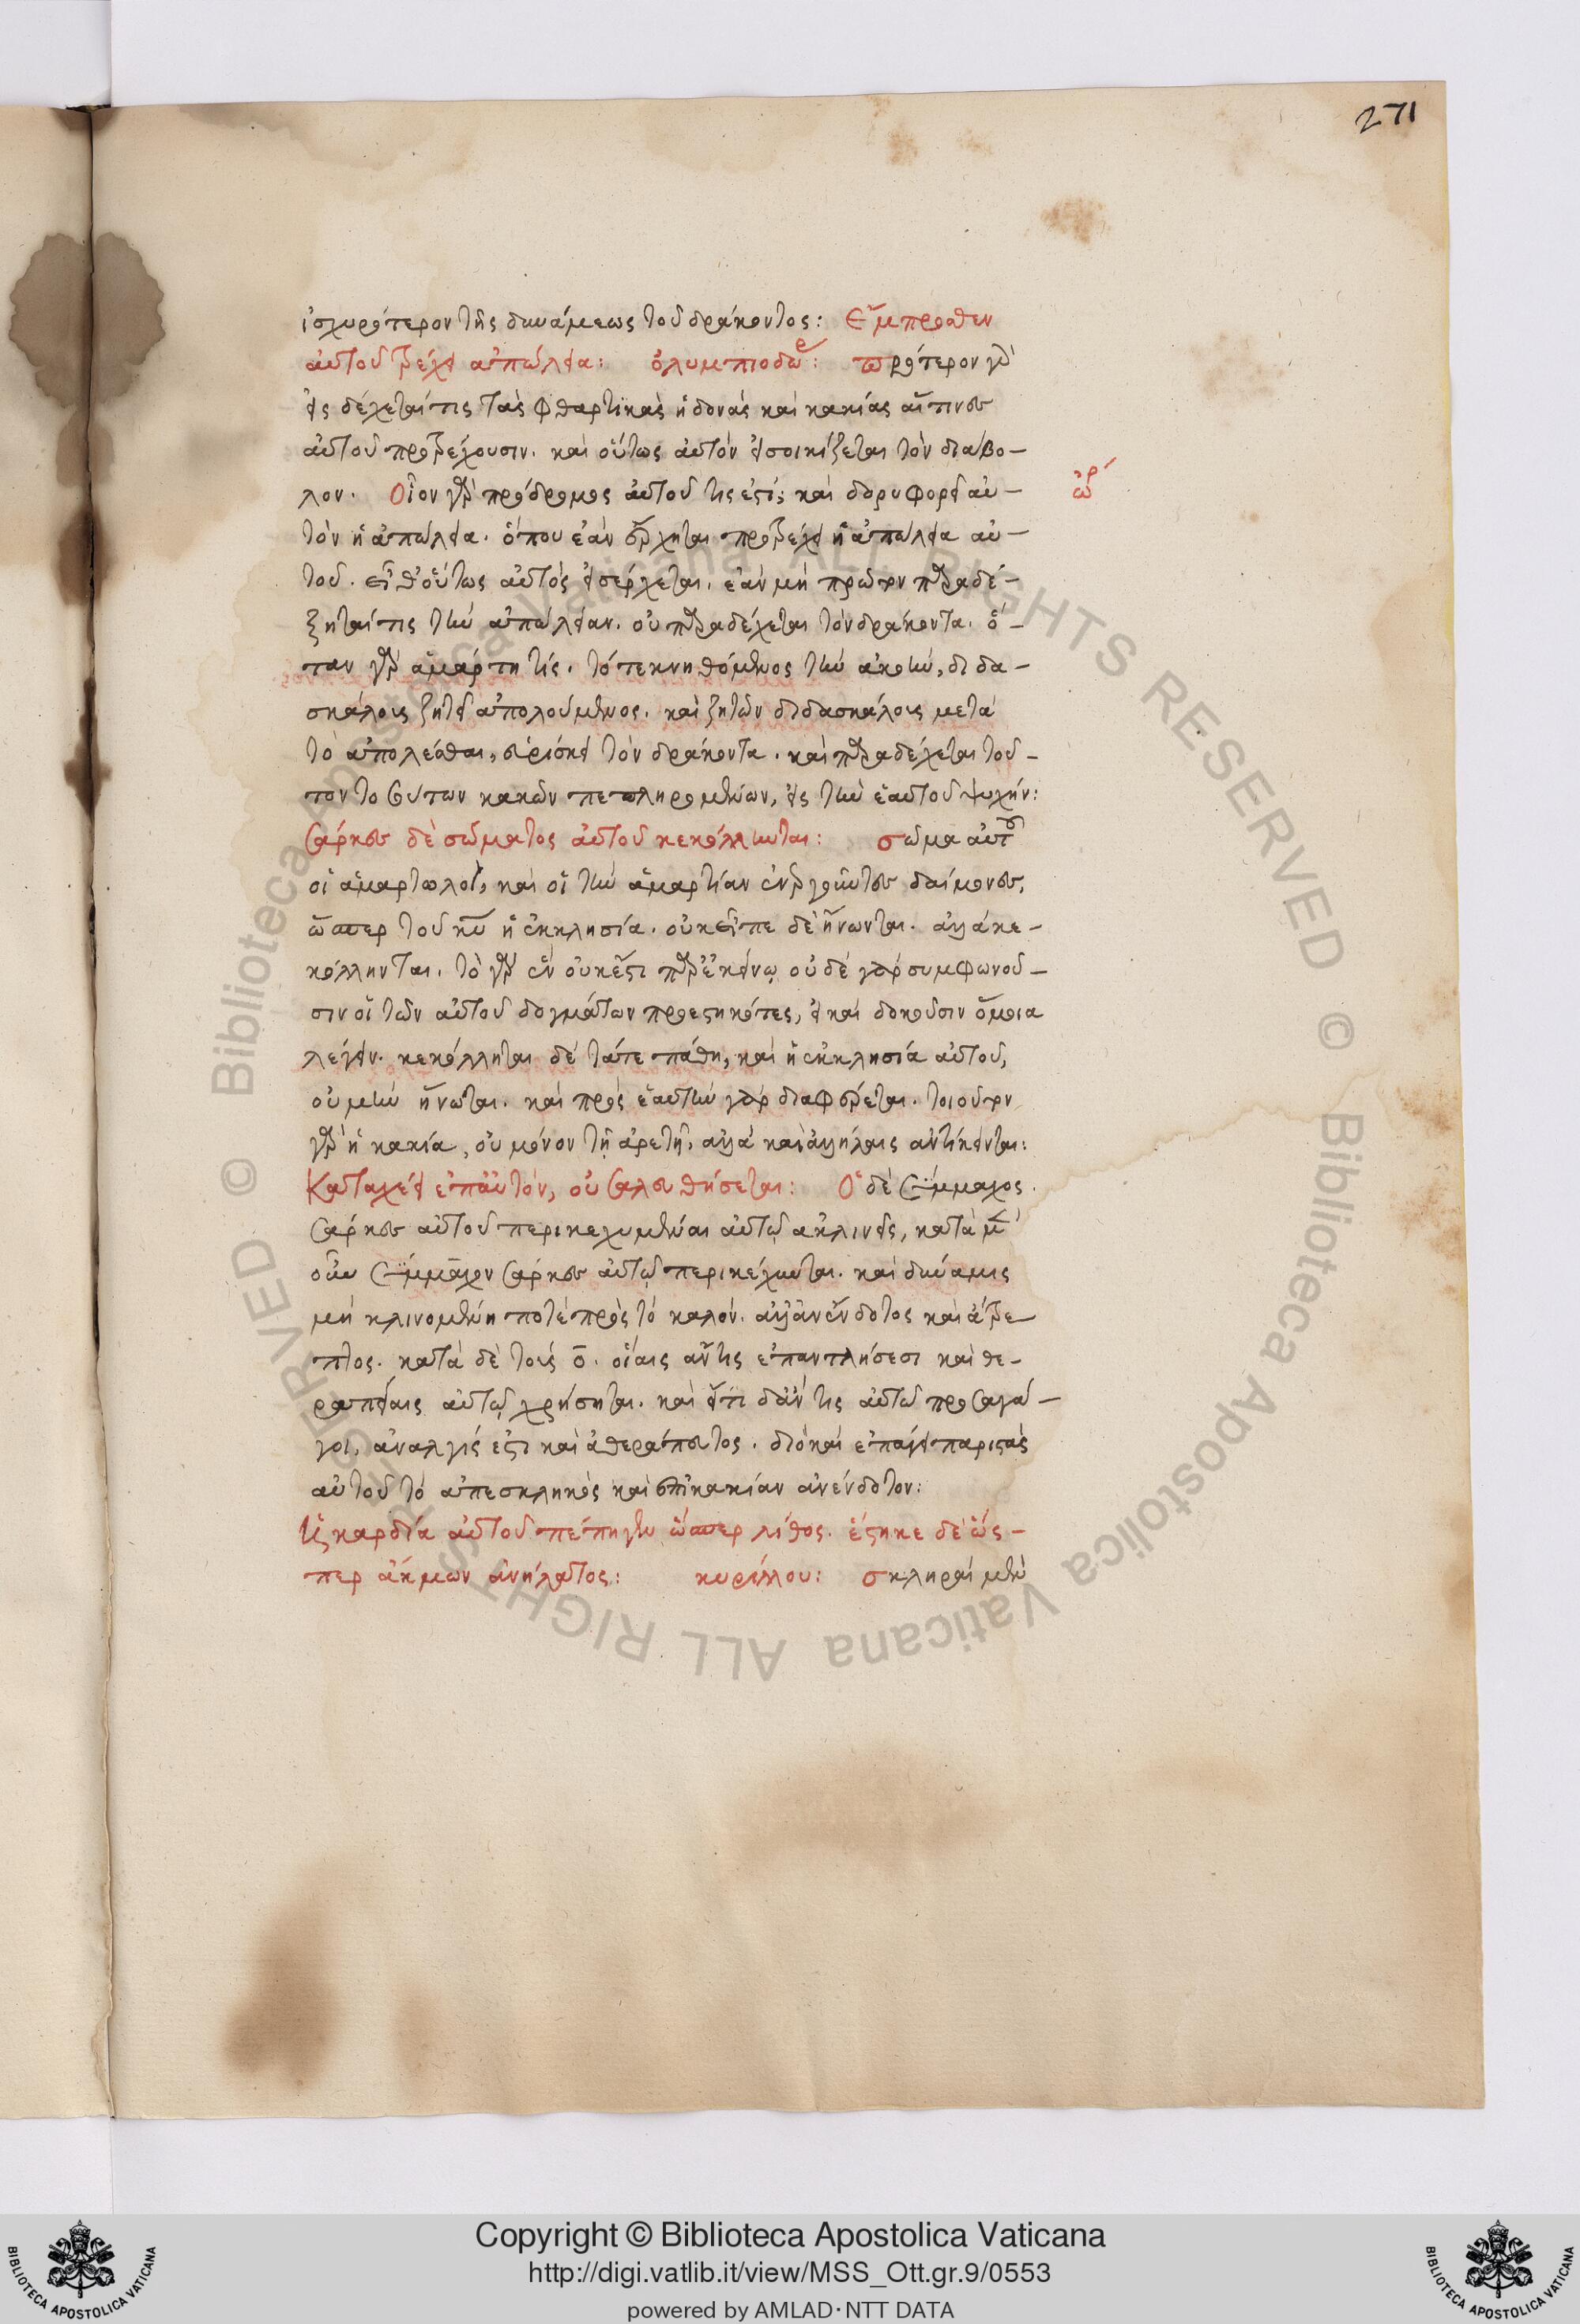 271
ἰσχυρότερον τῆς δυνάμεως τοῦ δράκοντος: Ἔμπροσθεν
αὐτοῦ τρέχει ἀπώλεια: ὀλυμπιοδώρ: πρότερον γὰρ
εἰς δέχεταί τις τὰς φθαρτικὰς ἡδονὰς καὶ κακίας αἵτινες
αὐτοῦ προτρέχουσιν. καὶ οὕτως αὐτὸν εἰσοικίζεται τὸν διάβο-
λον. Οἷον γὰρ πρόδρομος αὐτοῦ τίς ἐστι; καὶ δορυφορεῖ αὐ-
ὠρ
τὸν ἡ ἀπώλεια. ὅπου ἐὰν ἔρχηται προτρέχει ἡ ἀπώλεια αὐ-
τοῦ. εἶθ' οὕτως αὐτὸς εἰσέρχεται. ἐὰν μὴ πρῶτον παραδέ-
ξηταί τις τὴν ἀπώλειαν. οὐ παραδέχεται τὸν δράκοντα. ὅ-
ταν γὰρ ἁμάρτῃ τίς. τότε κνηθόμενος τὴν ἀκοὴν, διδα-
σκάλοις ζητεῖ ἀπολούμενος. καὶ ζητῶν διδασκάλοις μετὰ
τὸ ἀπολέσθαι, εὑρίσκει τὸν δράκοντα. καὶ παραδέχεται τοῦ-
τον τούτων κακῶν πεπληρομένων, εἰς τὴν ἑαυτοῦ ψυχήν:
Σάρκες δὲ σώματος αὐτοῦ κεκόλληνται: σῶμα αὐτοῦ
οἱ ἁμαρτωλοὶ, καὶ οἱ τὴν ἁμαρτίαν ἐνεργοῦντες δαίμονες,
ὥσπερ τοῦ κυ ἡ ἐκκλησία. οὐκ εἶπε δὲ ἥνωνται. ἀλλὰ κε-
κόλληνται. τὸ γὰρ ἓν οὐκ ἔστι παρ' ἐκείνῳ οὐδὲ γὰρ συμφωνοῦ-
σιν οἱ τῶν αὐτοῦ δογμάτων προεστηκότες, εἰ καὶ δοκοῦσιν ὅμοια
λέγειν. κεκόλληται δὲ τά τε πάθη, καὶ ἡ ἐκκλησία αὐτοῦ,
οὐ μὴν ἥνωται. καὶ πρὸς ἑαυτὴν γὰρ διαφέρεται. τοιοῦτον
γὰρ ἡ κακία, οὐ μόνον τῇ ἀρετῇ, ἀλλὰ καὶ ἀλλήλαις ἀντίκεινται:
Καταχέει ἐπ' αὐτὸν, οὐ σαλευθήσεται: Ὁ δὲ Σύμμαχος.
Σάρκες αὐτοῦ περικεχυμέναι αὐτῷ ἀκλινεῖς, κατὰ μὲν
οὖν Σύμμαχον Σάρκες αὐτῷ περικέχυνται. καὶ δύναμις
μὴ κλινομένη ποτὲ πρὸς τὸ καλόν. ἀλλ' ἀνένδοτος καὶ ἄτρε-
πτος. κατὰ δὲ τοὺς ο. οἵαις ἄν τις ἐπαντλήσεσι καὶ θε-
ραπείαις αὐτῷ χρήσηται. καὶ εἴ τι δ' ἄν τις αὐτῷ προσαγά-
γοι, ἀναλγίς ἐστι καὶ ἀθεράπευτος. διὸ καὶ ἐπάγει παριστὰς
αὐτοῦ τὸ ἀπεσκληκὸς καὶ ἐπὶ κακίαν ἀνένδοτον:
Ἡ καρδία αὐτοῦ πέπηγεν ὥσπερ λίθος. ἕστηκε δὲ ὥς-
περ ἄκμων ἀνήλατος: κυρίλλου: σκληραὶ μὲν
Copyright © Biblioteca Apostolica Vaticana
http://digi.vatlib.it/view/MSS_Ott.gr.9/0553
powered by AMLAD·NTT DATA